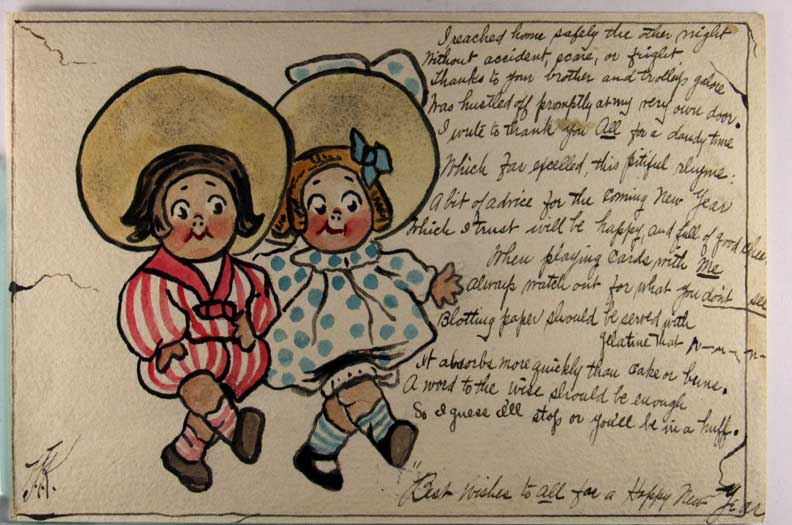 I reached home safely the other night
Without accident, scare, or fright
Thanks to your brother and trolleys galore
Was hustled off promptly at my very own door.
I write to thank you All for a dandy time
Which far excelled, this pitiful rhyme:
A bit of advice for the Coming New Year
Which I trust will be happy, and full of good cheer
When playing cards with Me
always watch out for what you don't see
Blotting paper should be served with
gelatine that r-n-n-n-
It absorbs more quickly than cake or buns.
A word to the wise should be enough
So I guess I'll stop or you'll be in a huff.
"Best Wishes to all for a Happy New Year